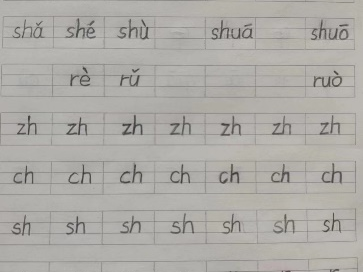 shǎ shé shù shuā shuō
rè rǔ ruò
zh zh zh zh zh zh zh
ch ch ch ch ch ch ch
sh sh sh sh sh sh sh